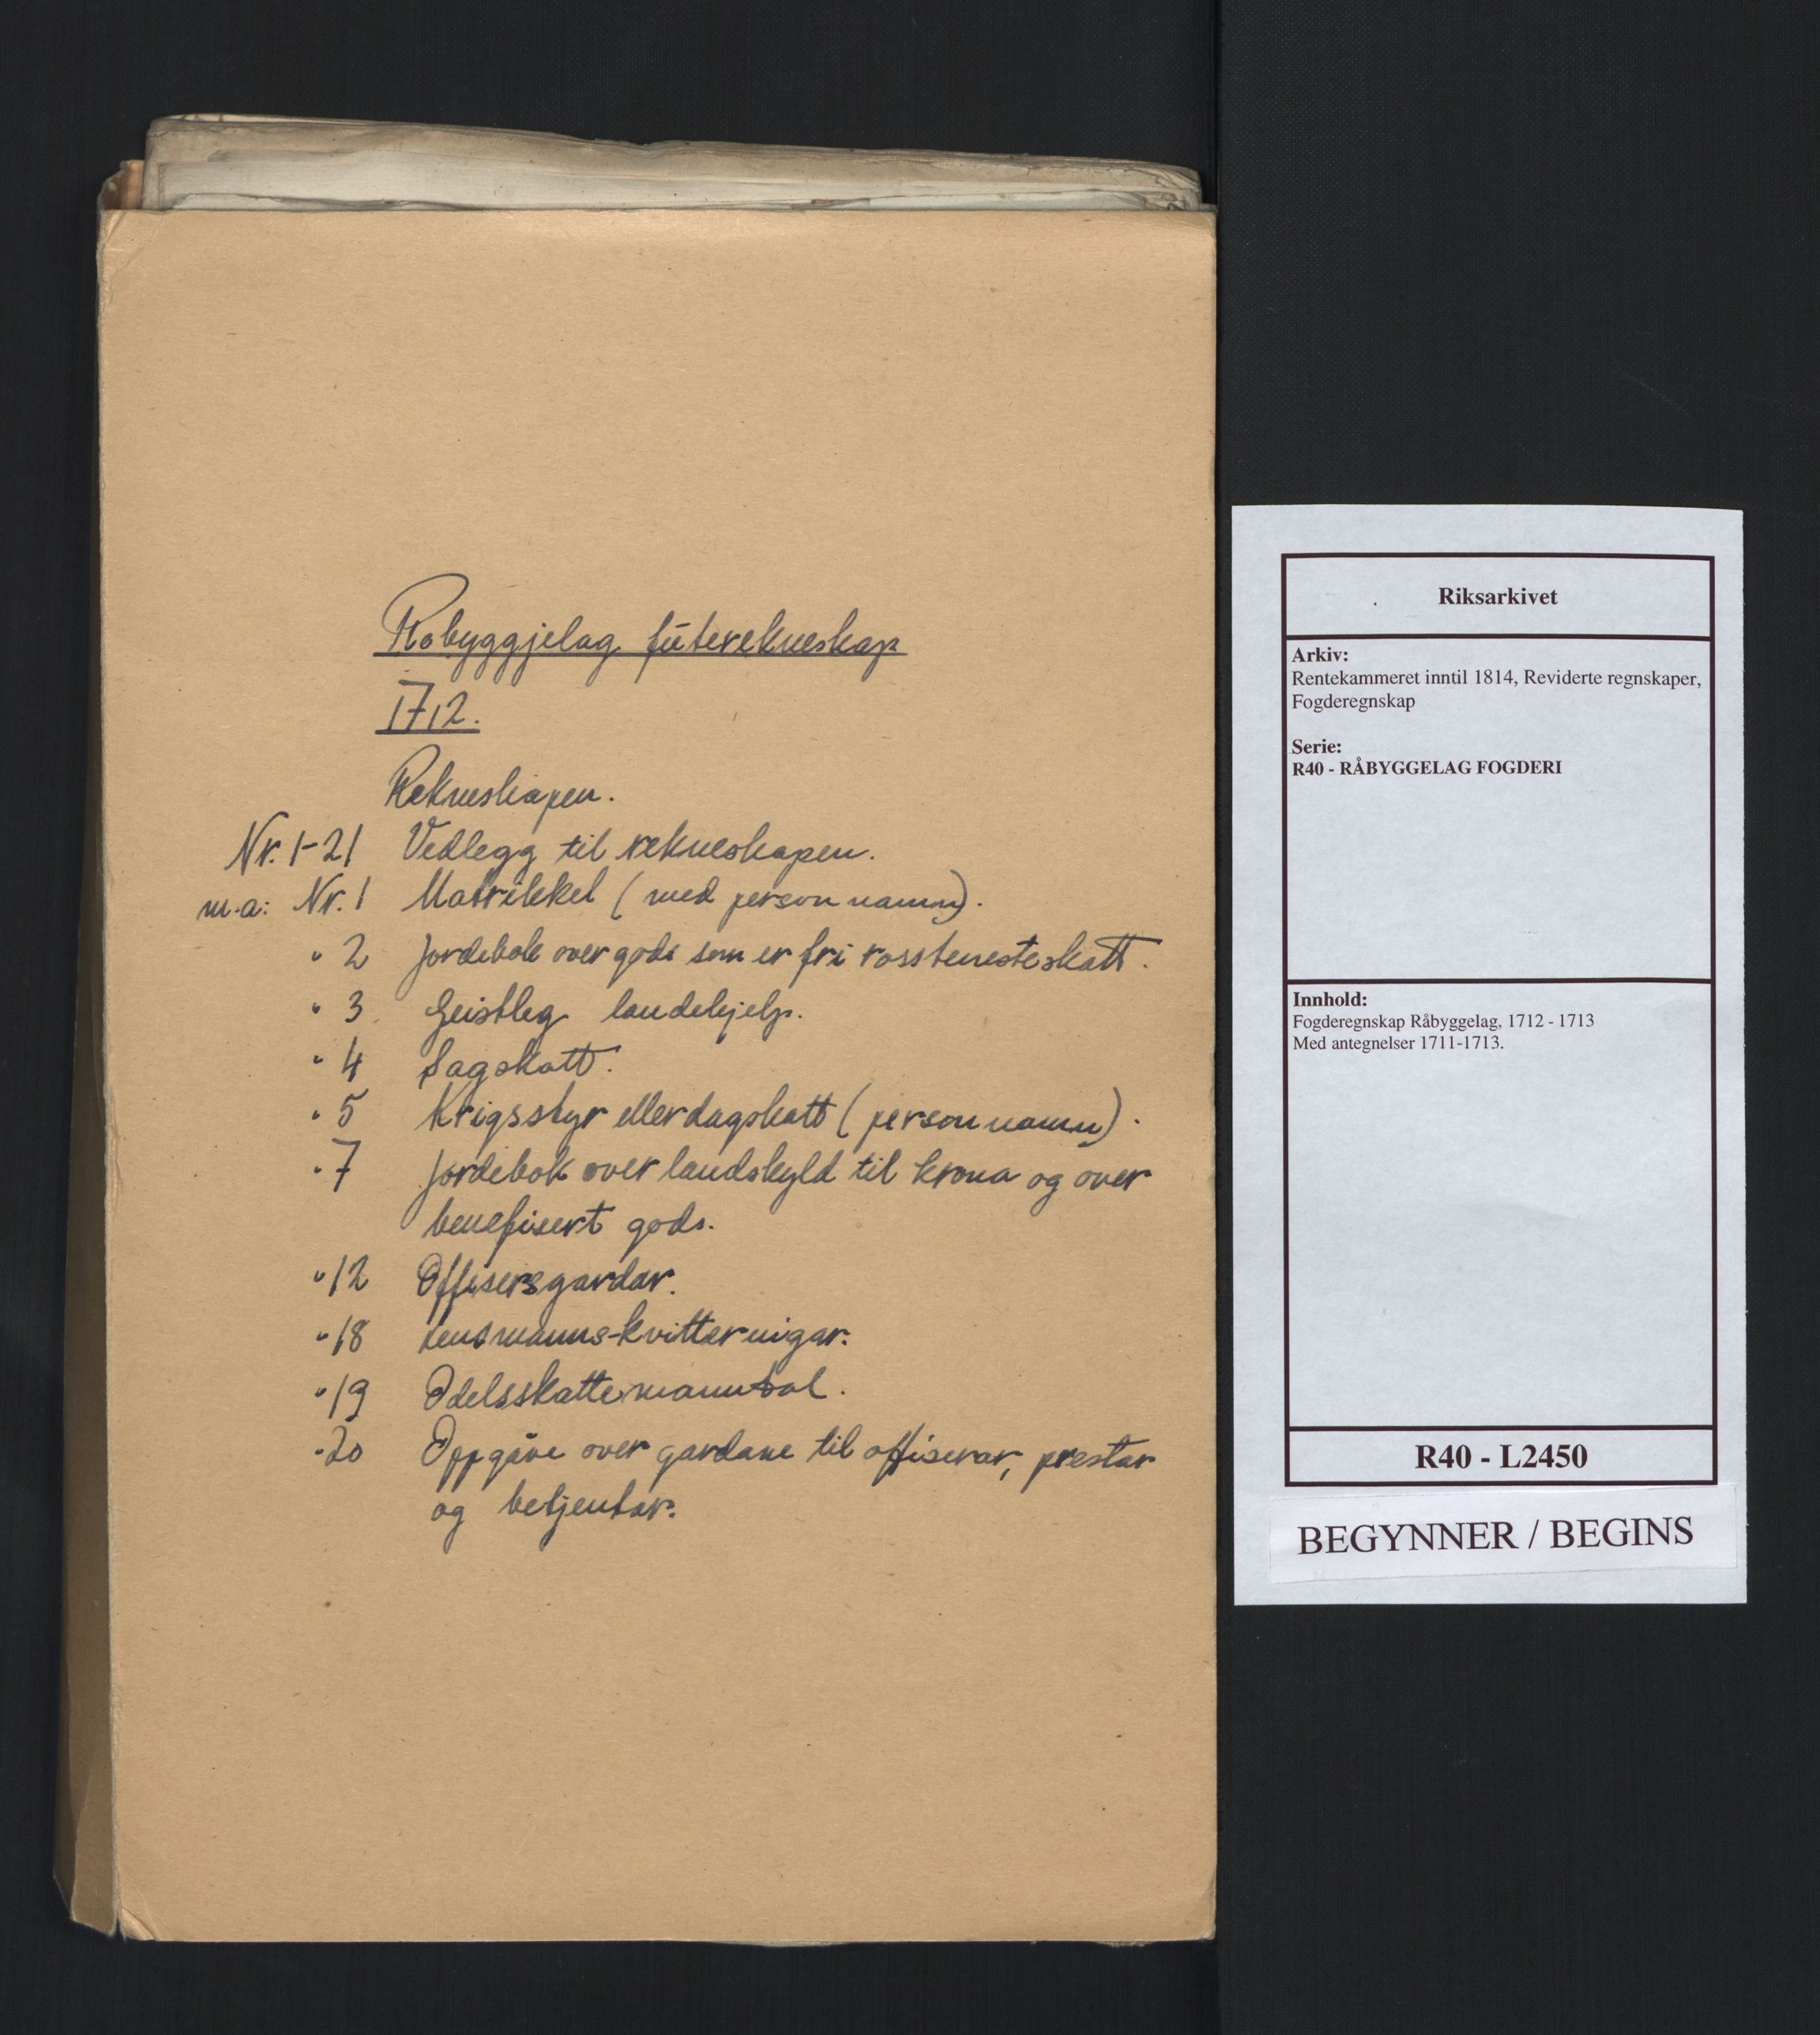 Robyggjelag futerekneskap
1712.
Rekneskapen.
Nr. 1-21 Vedlegg til rekneskapen.
m.a: Nr. 1 Matrikkel (med personnamn).
" 2 Jordebok over gods som er fri rosstenesteskatt.
" 3 Geistleg landehjelp.
" 4 Sagskatt.
" 5 Krigsstyr eller dagskatt (personnamn).
" 7 Jordebok over landskyld til krona og over
benefisert gods.
" 12 Offisersgardar.
" 18 Lensmanns-kvitteringar.
" 19 Odelsskattemanntal.
" 20 Oppgåve over gardane til offiserar, prestar
og betjentar.
Riksarkivet
Arkiv:
Rentekammeret inntil 1814, Reviderte regnskaper,
Fogderegnskap
Serie:
R40 - RÅBYGGELAG FOGDERI
Innhold:
Fogderegnskap Råbyggelag, 1712 - 1713
Med antegnelser 1711-1713.
R40 - L2450
BEGYNNER / BEGINS